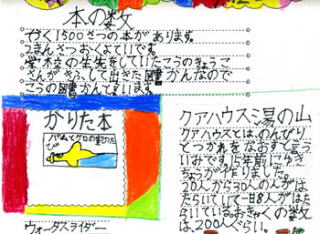 本の数
やく1500さつの本があります。
2まんさつおくよていです。
学校の先生をしていたこうのきょうこ
さんがきふして出きた図書かんなので
こうの図書かんていいます。
かりた本
クアハウス湯の山
クアハウスとは、のんびり
とつかれをなおすと言う
いみです。15年前にゆき
ちょうが作りました。
20人から30人の人がは
たらいていて一日8人がはた
らいている。おきゃくの数
は、200人ぐらい。
ウォータスライダー